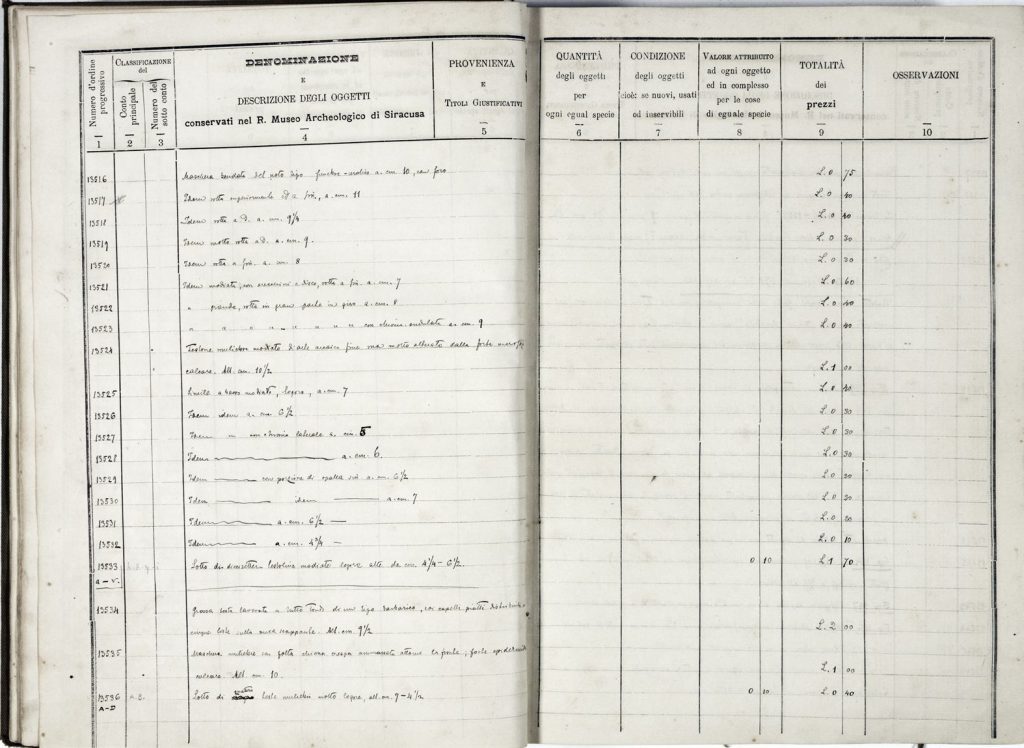 Numero d'ordine progressivo
CLASSIFICAZIONE del
Conto principale
Numero del sotto conto
DENOMINAZIONE
E
DESCRIZIONE DEGLI OGGETTI
conservati nel R. Museo Archeologico di Siracusa
PROVENIENZA
E
TITOLI GIUSTIFICATIVI
QUANTITÀ
degli oggetti
per
ogni egual specie
CONDIZIONE
degli oggetti
cioè: se nuovi, usati
od inservibili
VALORE ATTRIBUITO
ad ogni oggetto
ed in complesso
per le cose
di eguale specie
TOTALITÀ
dei
prezzi
OSSERVAZIONI
1 2 3 4 5 6 7 8 9 10
13516 Maschera bendata del noto tipo a. cm. 10, con foro L. 0 75
13517 Idem rotta superiormente ed a sin., a. cm. 11 L. 0 40
13518 Idem rotta a d. a. cm. 9 1/4 L. 0 40
13519 Idem molto rotta a d. a. cm. 9. L. 0 30
13520 Idem rotta a sin. a. cm. 8 L. 0 30
13521 Idem modiata, con orecchini a disco, rotta a sin. a. cm. 7 L. 0 60
13522 " grande, rotta in gran parte in giro a. cm. 8 L. 0 40
13523 " " " " " " " con chioma ondulata a. cm. 9 L. 0 40
13524 Testone muliebre modiato d'arte arcaica fine ma molto alterato dalla forte
calcare. Alt. cm. 10 1/2 L. 1 00
13525 Simile a basso modiato, logoro, a. cm. 7 L. 0 40
13526 Idem idem a. cm. 6 1/2 L. 0 30
13527 Idem " con chioma laterale a. cm. 5 L. 0 30
13528 Idem a. cm. 6. L. 0 30
13529 Idem con porzione di spalla sin. a. cm. 6 1/2 L. 0 20
13530 Idem idem a. cm. 7 L. 0 20
13531 Idem a. cm. 6 1/2 — L. 0 20
13532 Idem a. cm. 4 3/4 — L. 0 10
13533 Lotto di diecisette testoline modiate logore alte da cm. 4 1/4 – 6 1/2. 0 10 L. 1 70
a – v.
13534 Grossa testa lavorata a tutto tondo di un tipo barbarico, con capelli piatti
cinque liste sulla nuca scappante. Alt. cm. 9 1/2 L. 2 00
13535 Maschera muliebre con folta chioma crespa ammassata attorno la fronte; forte
calcare. Alt. cm. 10. L. 1 00
13536 A.B. Lotto di teste muliebri molto logore, alt. cm. 9 – 4 1/2 0 10 L. 0 40
A–D